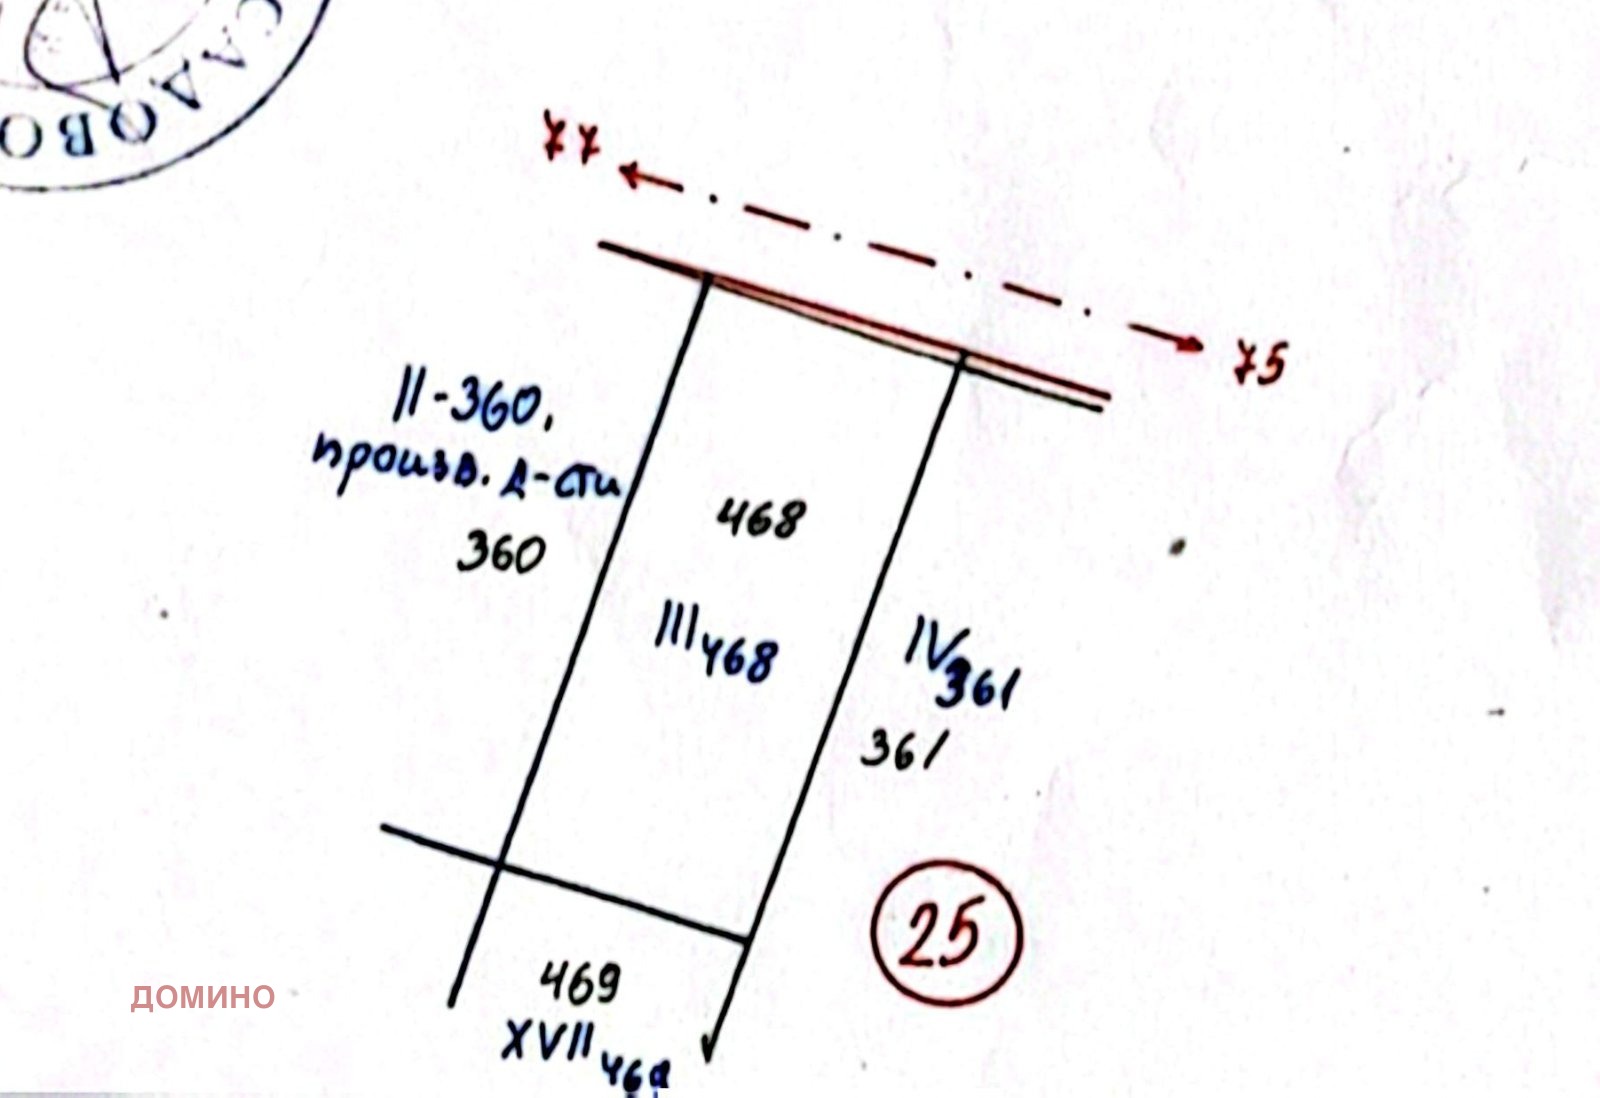 77
75
II-360,
произв. д-сти
360
468
III 468
IV 361
361
25
469
XVII 469
ДОМИНО